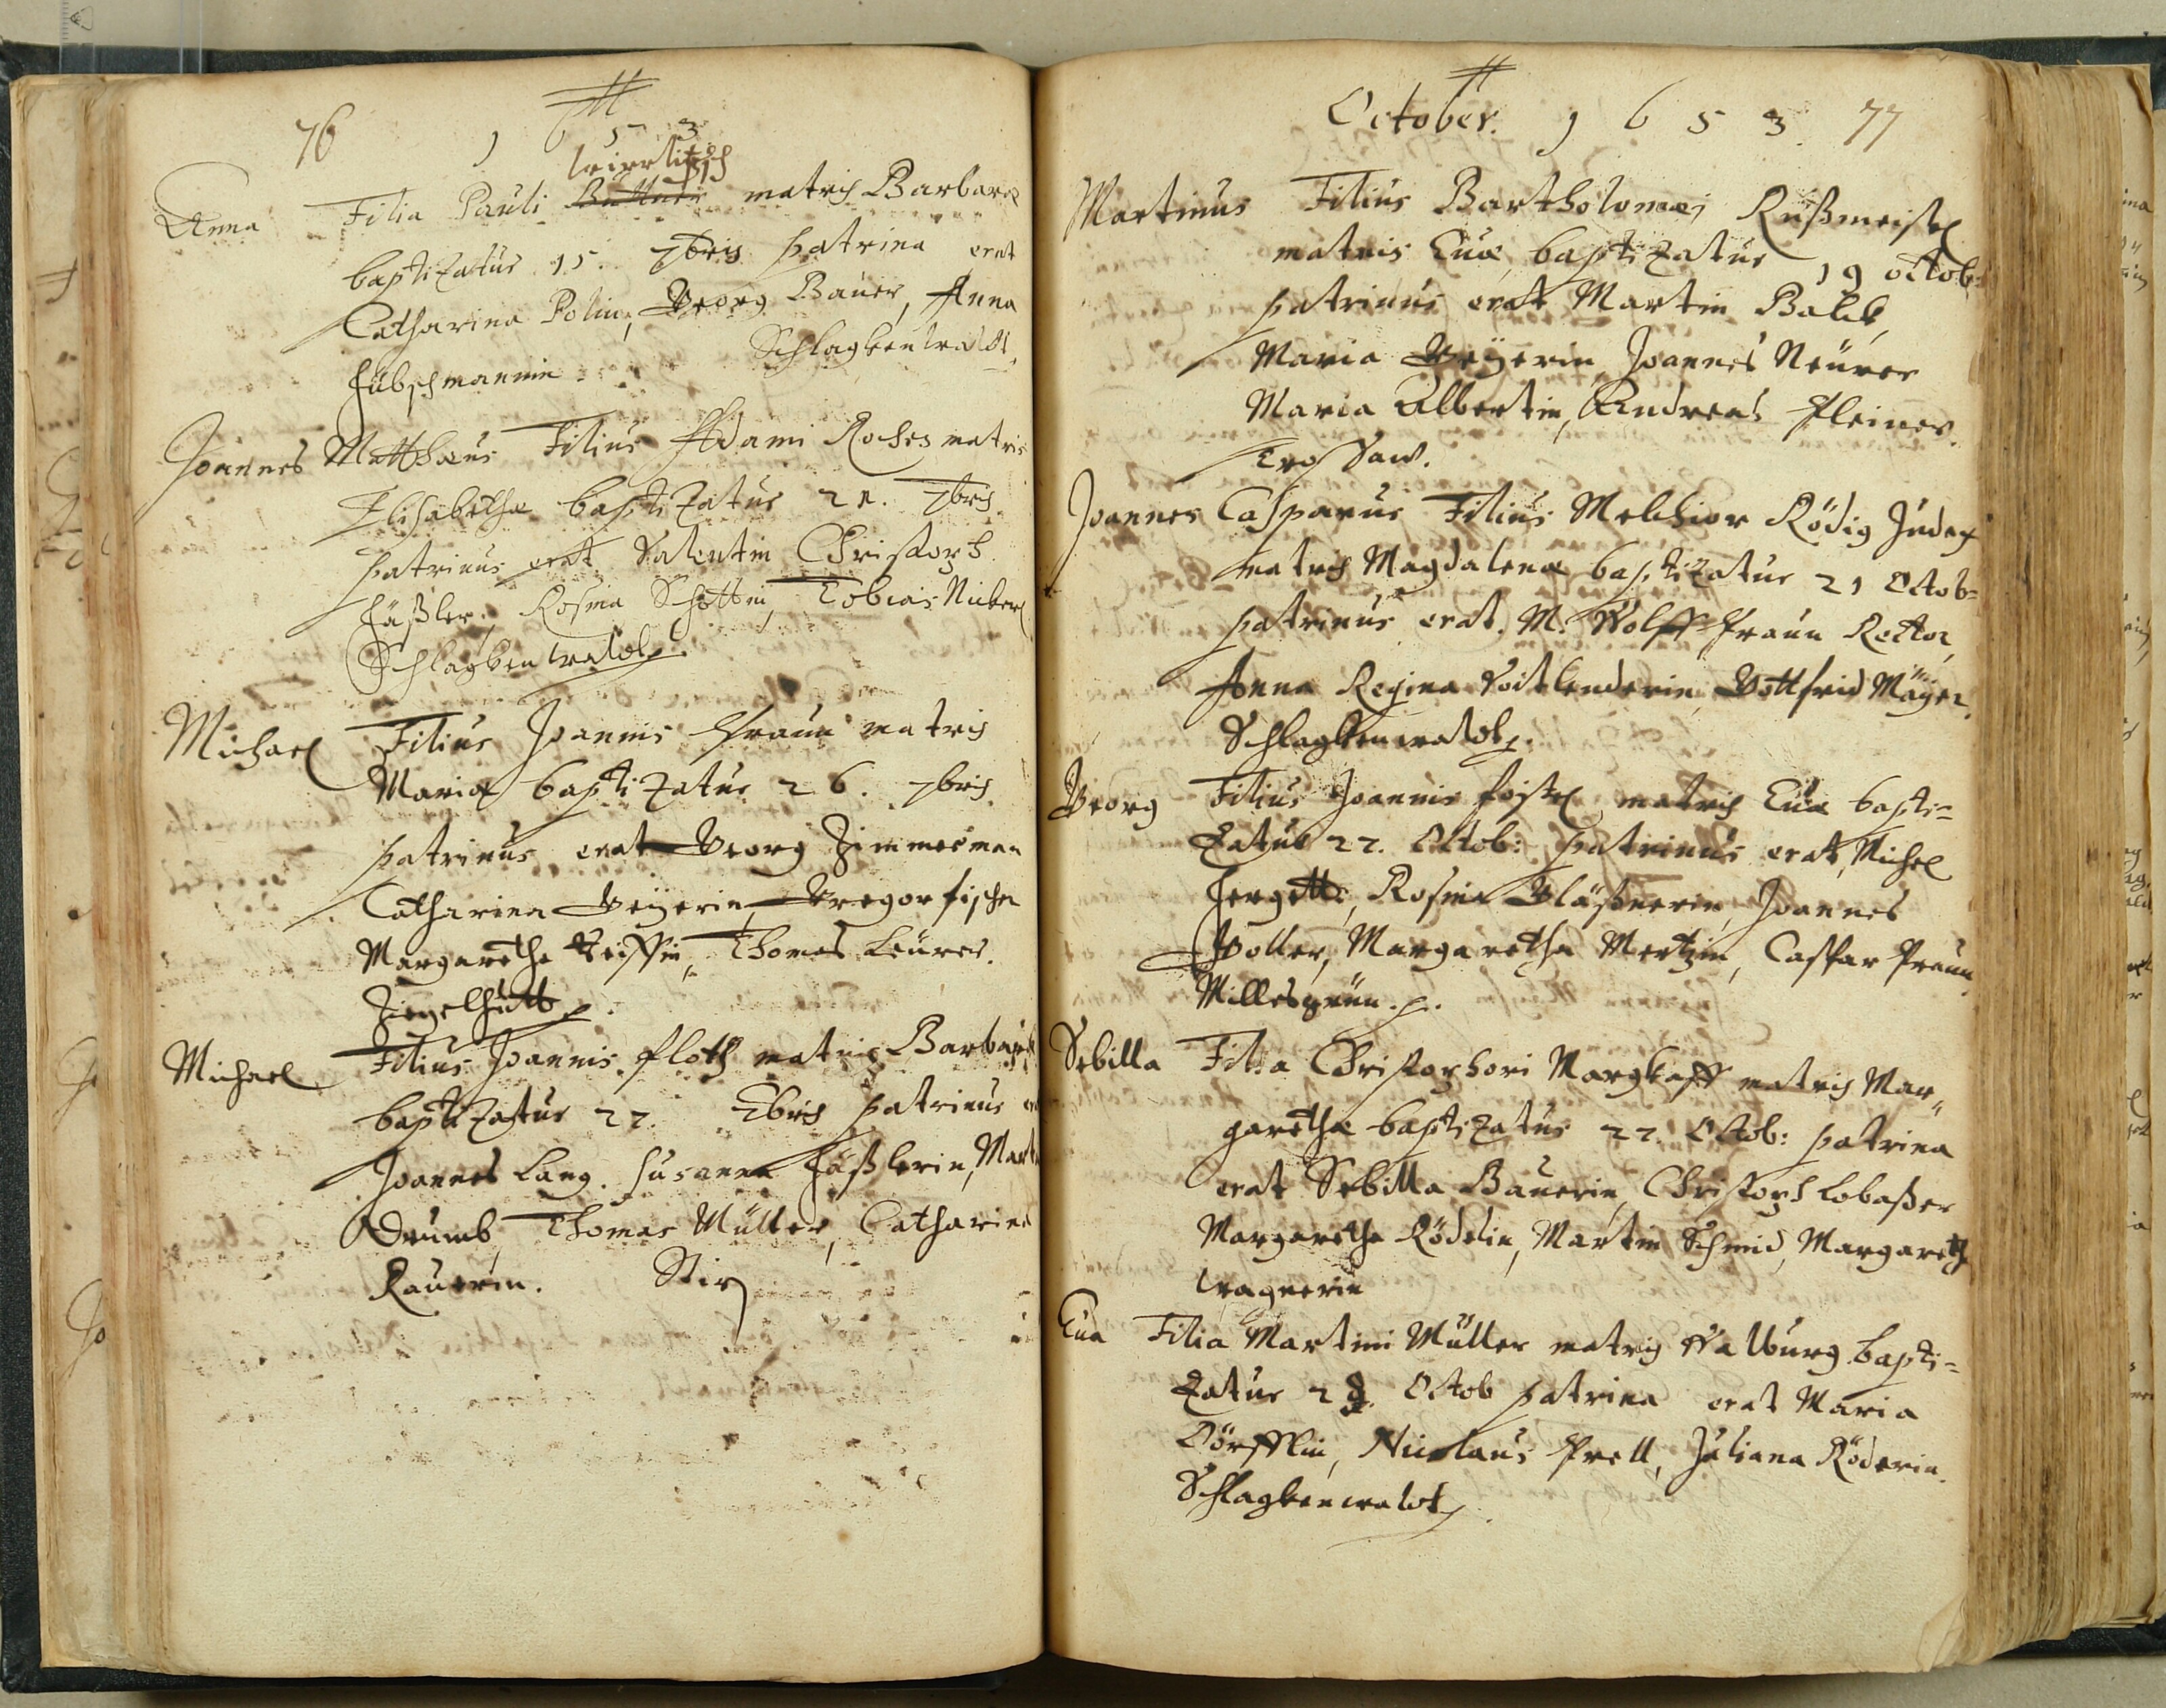 76
1 6 5 3
Anna Filia Pauli Buttner matris Barbaræ
baptizatus 15. 7bris patrina erat
Catharina Polin, Georg Bauer, Anna
Hübschmannin. Schlagkenwaldt.
Joannes Matthæus Filius Adami Roches matris
Elisabethæ baptizatus 21. 7bris
patrinus erat Valentin Christoph
Häßler, Rosina Schottin, Tobias
Schlagkenwaldt.
Michael Filius Joannis Praun matris
Mariæ baptizatus 26. 7bris
patrinus erat Georg Zimmerman
Catharina Geÿerin, Gregor Fischer
Margaretha Thomas Leürer.
Ziegelhütt
Michael Filius Joannis Ploth matris Barbaræ
baptizatus 27. 7bris patrinus
Joannes Lang. Susanna Häßlerin,
Thomas Müller, Catharina
Bauerin. Stirn
October. 1 6 5 3. 77
Martinus Filius Bartholomæi Rußmeister
matris Euæ, baptizatus 19 octob:
patrinus erat Martin Balck,
Maria Geÿerin Joannes Neürer
Maria Albertin, Andreas Pleiner.
Trossaw.
Joannes Casparus Filius Melchior Rödig Judex
matris Magdalenæ baptizatus 21 Octob=
patrinus erat. M. Wolff Praun Rector,
Anna Regina Voitlenderin, Gottfrid Maÿer.
Schlagkenwaldt.
Georg Filius Joannis matris Euæ bapti=
zatus 27. Octob: patrinus erat, Michel
Rosina Gläßnerin, Joannes
Margaretha Mertzin, Caspar Praun
Millesgrün.
Sebilla Filia Christophori Margkaff matris Mar„
garethæ baptizatus 27. Octob: patrina
erat Sebilla Bauerin, Christoph Lobaßer
Margaretha Rödelin, Martin Schmid, Margareth
Wagnerin
Eua Filia Martini Müller matris Walburg bapti=
zatus 28. Octob patrina erat Maria
Dörfflin, Nicolaus Prell, Juliana Röderin.
Schlagkenwaldt